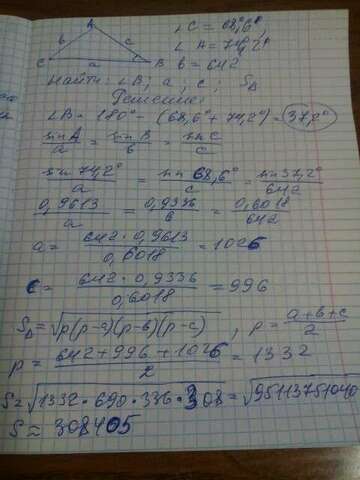 A
b c
C a B
∠C = 68,6°
∠A = 74,2°
b = 642
Найти: ∠B; a, c, S∆
Решение:
∠B = 180° - (68,6° + 74,2°) = 37,2°
sin A / a = sin B / b = sin C / c
sin 74,2° / a = sin 68,6° / c = sin 37,2° / 642
0,9613 / a = 0,9336 / b = 0,6018 / 642
a = 642 · 0,9613 / 0,6018 = 1026
c = 642 · 0,9336 / 0,6018 = 996
S∆ = √p(p-a)(p-b)(p-c), p = a+b+c / 2
p = 642 + 996 + 1026 / 2 = 1332
S = √1332 · 690 · 336 · 308 = √95113751040
S ≈ 308405